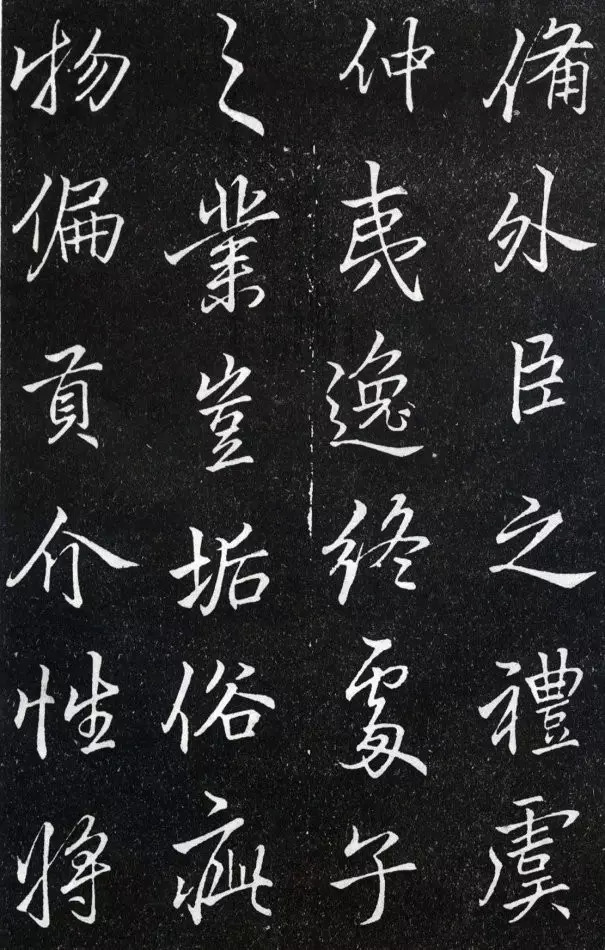 備外臣之禮虞
仲夷逸終處子
之業豈垢俗疵
物偏貢介性將